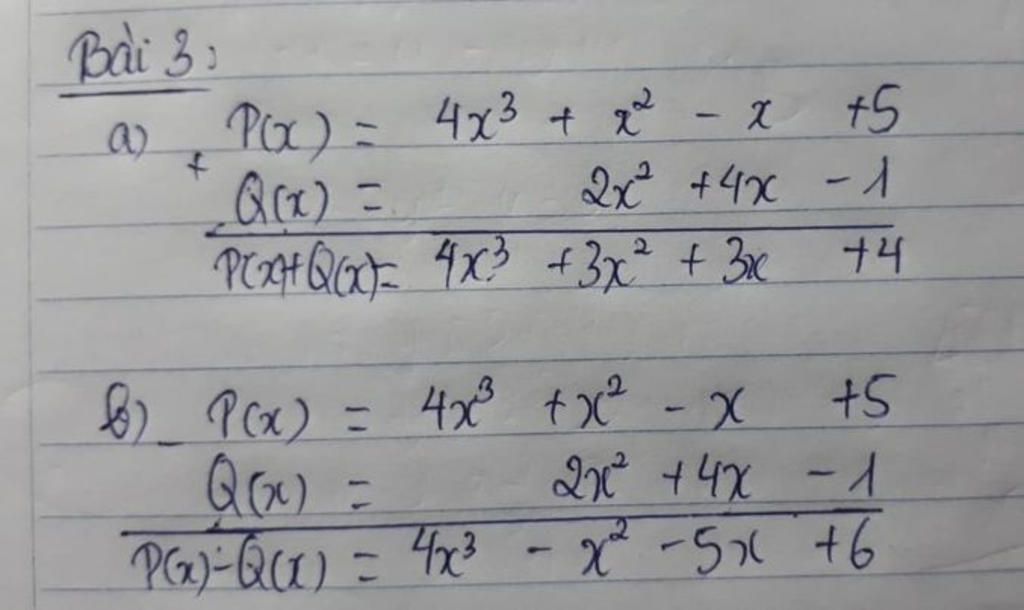 Bài 3:
a) + P(x) = 4x³ + x² - x +5
Q(x) = 2x² +4x - 1
P(x)+Q(x)= 4x³ +3x² + 3x +4
b) - P(x) = 4x³ +x² - x +5
Q(x) = 2x² +4x - 1
P(x)-Q(x) = 4x³ - x² -5x +6